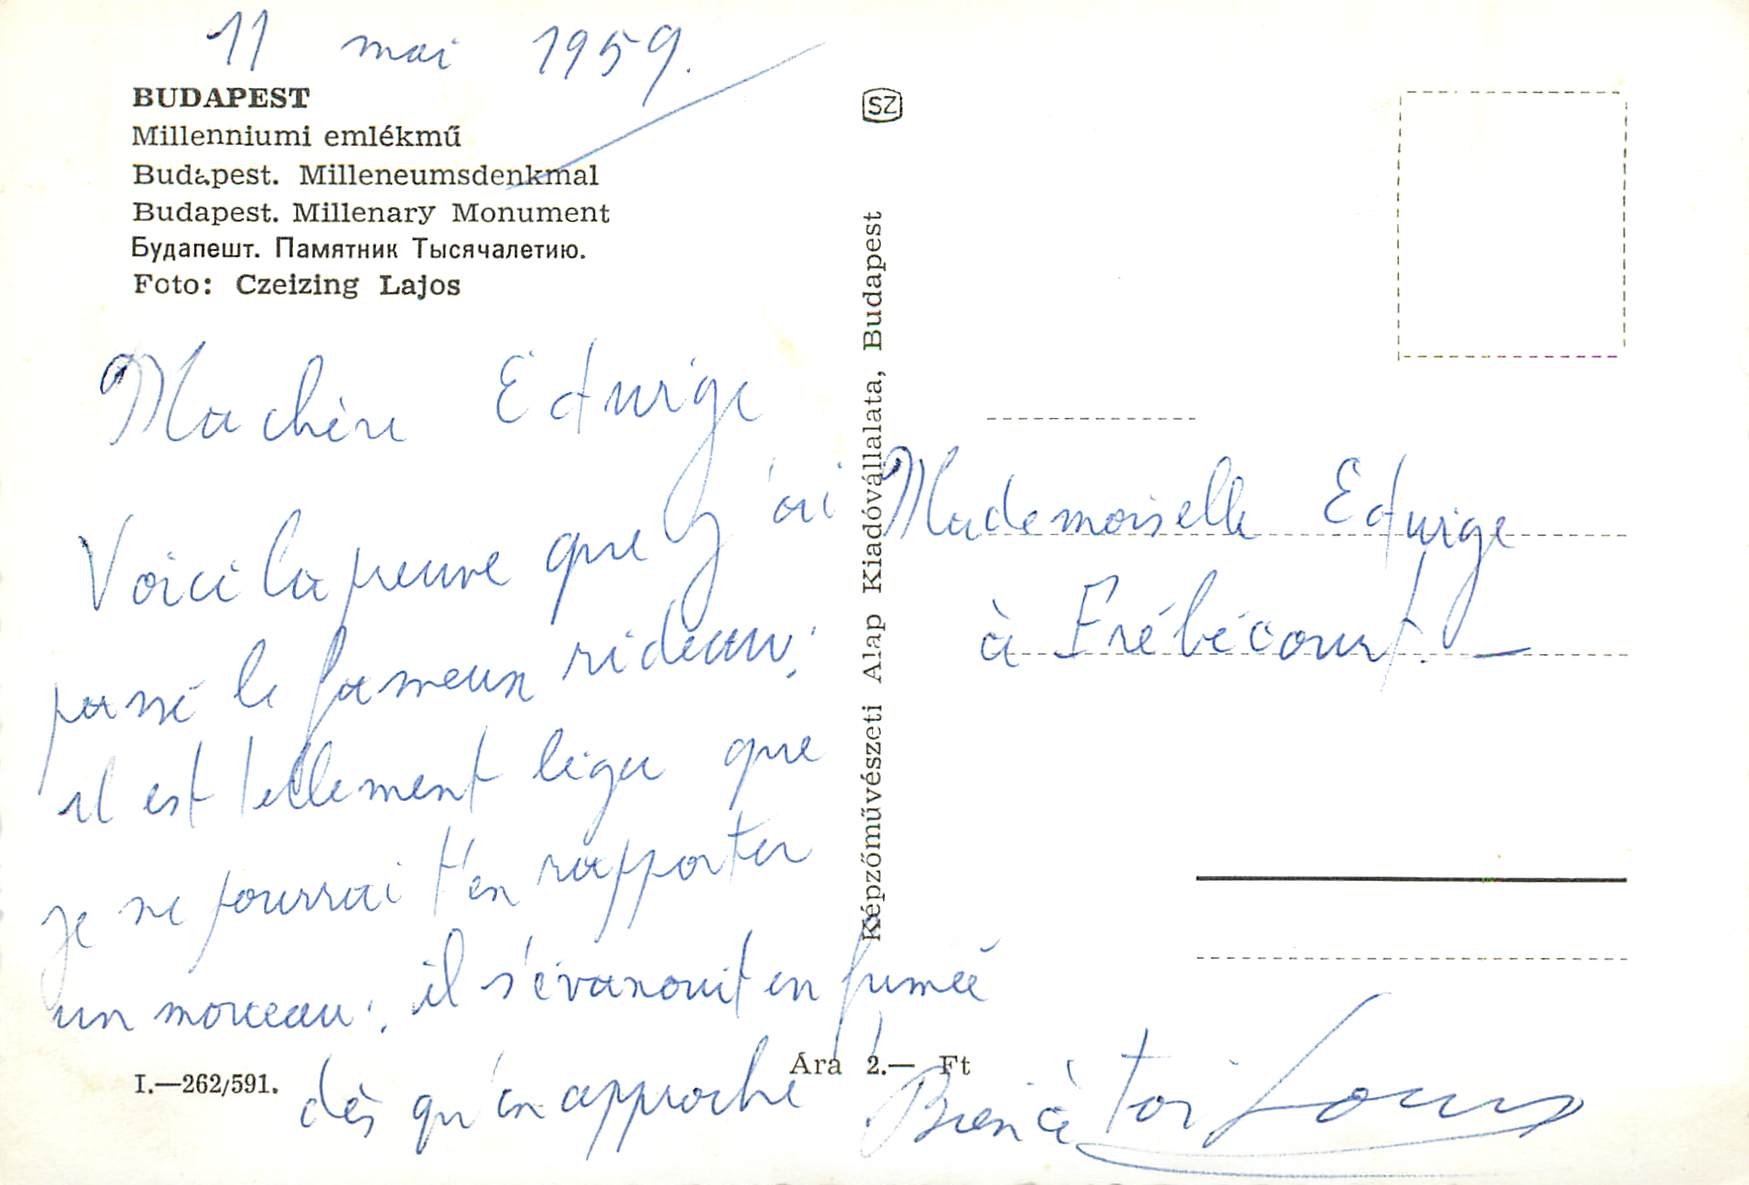 11 mai 1959.
BUDAPEST
Millenniumi emlékmű
Budapest. Milleneumsdenkmal
Budapest. Millenary Monument
Будапешт. Памятник Тысячалетию.
Foto: Czeizing Lajos
Ma chère Edwige
Voici la preuve que j'ai
passé le fameux rideau;
il est tellement léger que
je ne pourrai t'en rapporter
un morceau; il s'évanouit en fumée
dès qu'on approche!
Bien à toi Louis
I.—262/591.
Ára 2.— Ft
SZ
Képzőművészeti Alap Kiadóvállalata, Budapest
Mademoiselle Edwige
à Frébécourt. —